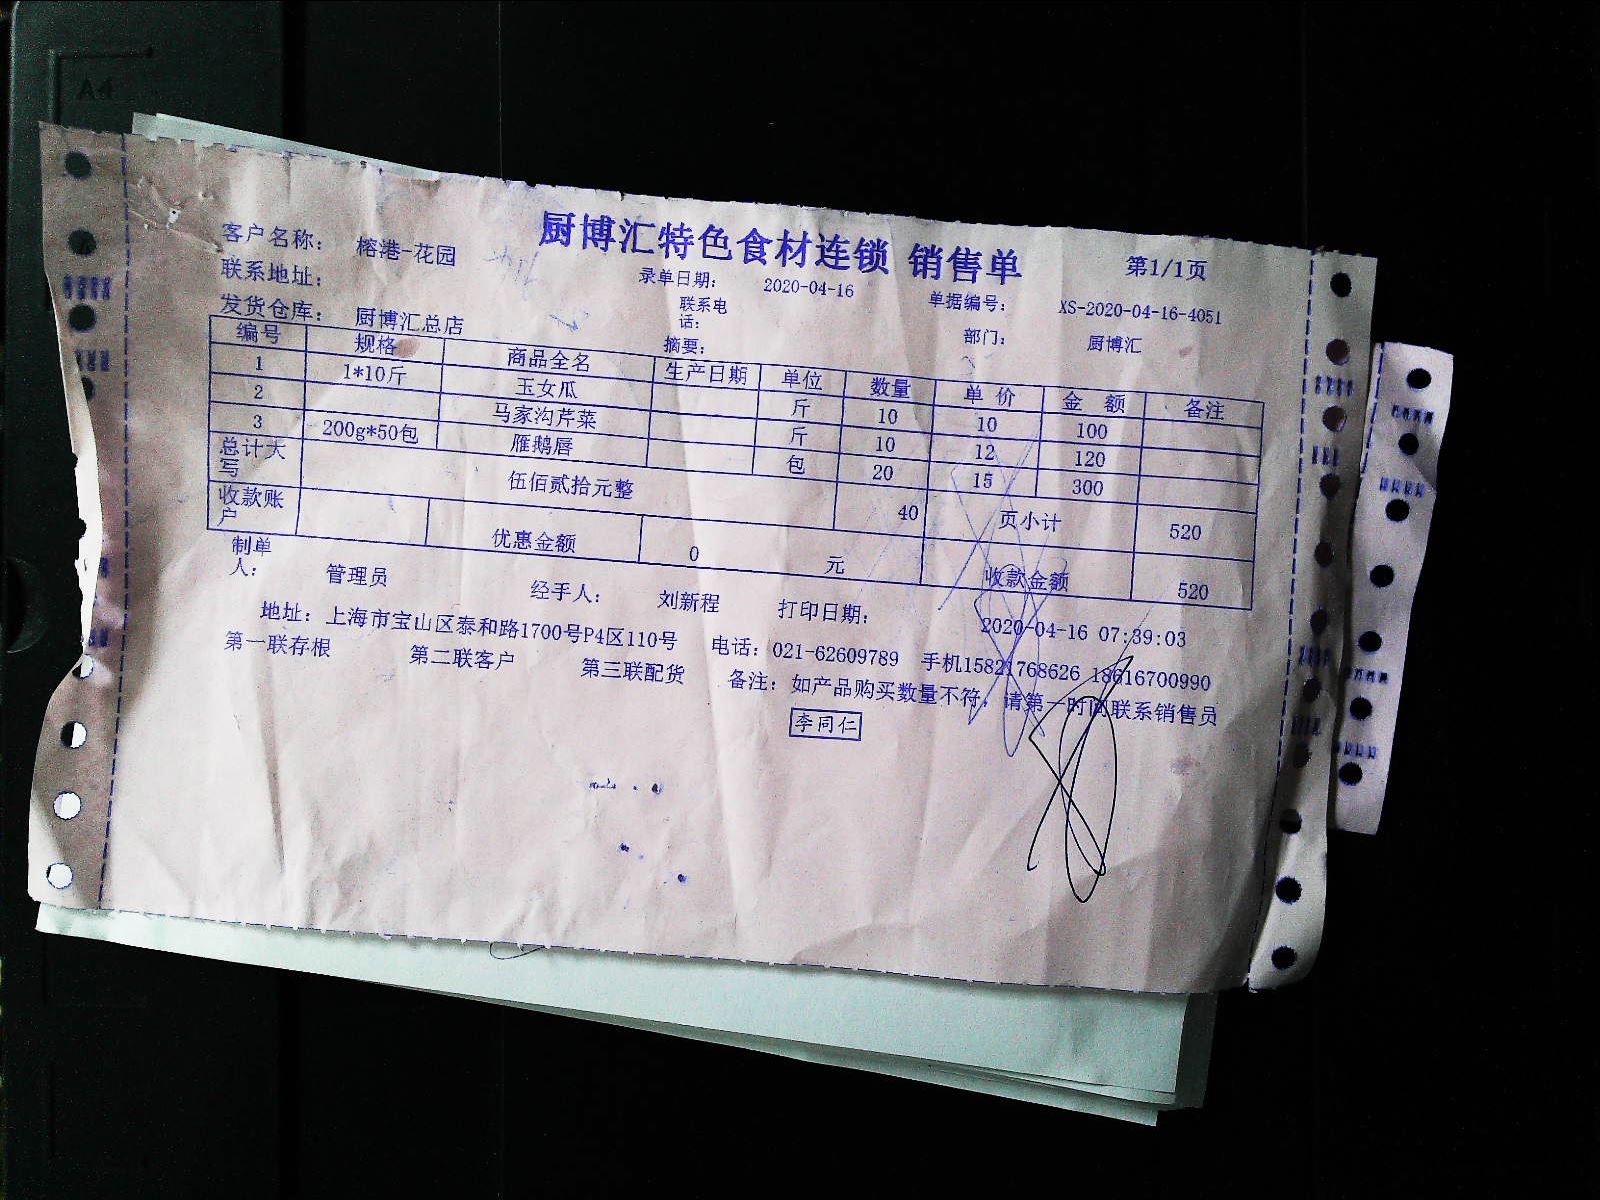 A4
厨博汇特色食材连锁 销售单
第1/1页
客户名称: 榕港-花园
录单日期: 2020-04-16
单据编号: XS-2020-04-16-4051
联系地址:
联系电话:
部门: 厨博汇
发货仓库: 厨博汇总店
摘要:
编号 规格 商品全名 生产日期 单位 数量 单价 金额 备注
1 1*10斤 玉女瓜 斤 10 10 100
2 马家沟芹菜 斤 10 12 120
3 200g*50包 雁鹅唇 包 20 15 300
总计大写 伍佰贰拾元整 40 页小计 520
收款账户 优惠金额 0 元 收款金额 520
制单人: 管理员 经手人: 刘新程 打印日期: 2020-04-16 07:39:03
地址: 上海市宝山区泰和路1700号P4区110号 电话: 021-62609789 手机15821768626 18616700990
第一联存根 第二联客户 第三联配货 备注: 如产品购买数量不符, 请第一时间联系销售员
李同仁